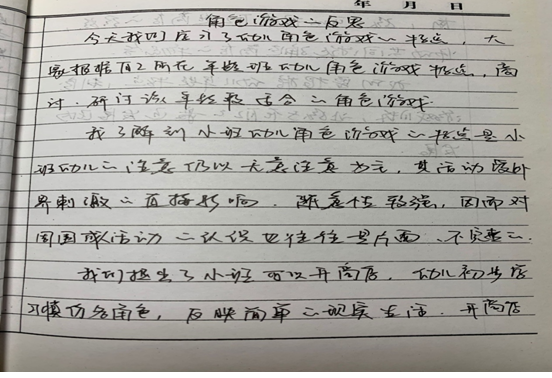 年 月 日
角色游戏的反思
今天我们学习了幼儿角色游戏的特点,大
家根据自己所在年龄班幼儿角色游戏特点,商
讨、研讨该年龄段适合的角色游戏.
我了解到小班幼儿角色游戏的特点是小
班幼儿的注意仍以无意注意为主,其活动受外
界刺激的直接影响,随意性较强,因而对
周围或活动的认识也往往是片面、不完整的.
我们提出了小班可以开商店,幼儿初步学
习模仿各角色,反映简单的现实生活.开商店